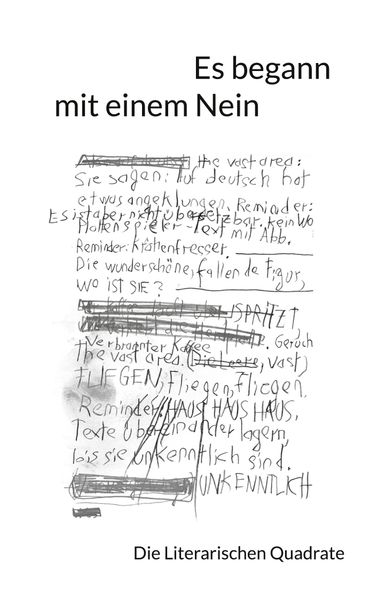 Es begann
mit einem Nein
the vast area:
Sie sagen: Auf deutsch hat
etwas angeklungen. Reminder:
Es ist aber nicht übersetzbar. kein Wo
Flötenspieler-Text mit Abb.
Reminder: Krähenfresser.
Die wunderschöne, fallende Figur,
WO IST SIE?
SPRITZT,
Geruch
Verbrannter Kaffee
The vast area. (Die Leere, vast)
FLIEGEN, Fliegen, fliegen.
Reminder: HAUS HAUS HAUS,
Texte übereinander lagern,
bis sie unkenntlich sind.
UNKENNTLICH
Die Literarischen Quadrate